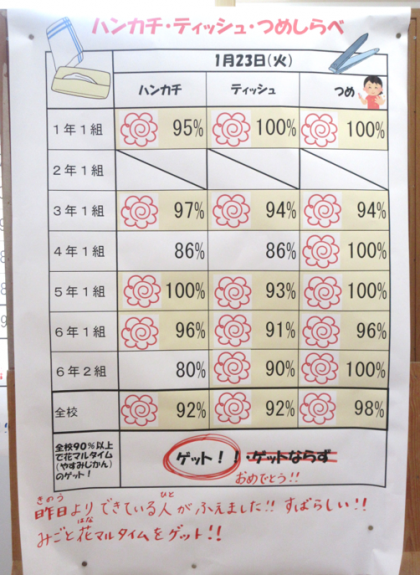 ハンカチ・ティッシュ・つめしらべ
1月23日(火)
ハンカチ ティッシュ つめ
1年1組 95% 100% 100%
2年1組
3年1組 97% 94% 94%
4年1組 86% 86% 100%
5年1組 100% 93% 100%
6年1組 96% 91% 96%
6年2組 80% 90% 100%
全校 92% 92% 98%
全校90%以上
で花マルタイム
(やすみじかん)
のゲット!
ゲット!!・ゲットならず
おめでとう!!
きのう ひと
昨日よりできている人がふえました!! すばらしい!!
はな
みごと花マルタイムをゲット!!